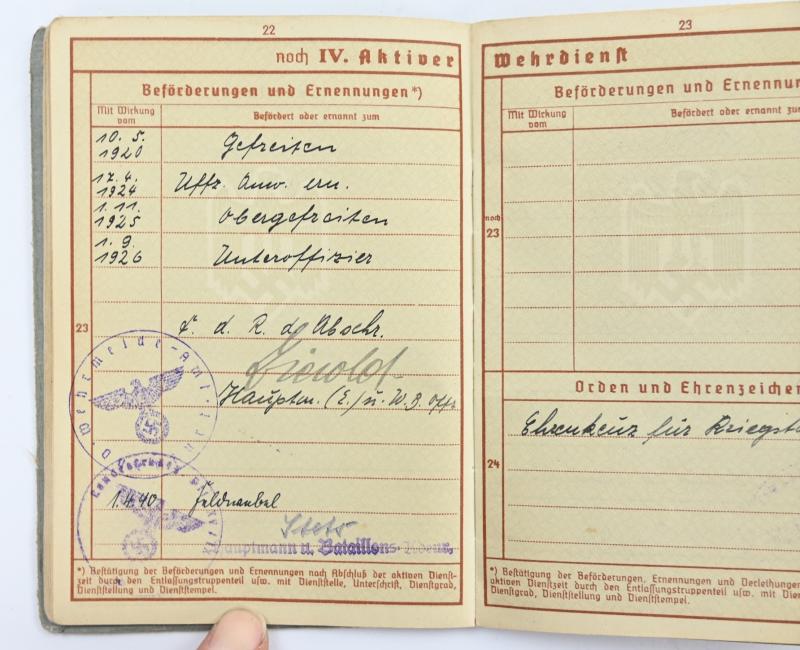 22
noch IV. Aktiver
Beförderungen und Ernennungen*)
Mit Wirkung vom
Befördert oder ernannt zum
10. 5. 1920
Gefreiten
17. 4. 1924
Uffz. Anw. ern.
1. 11. 1925
Obergefreiten
1. 9. 1926
Unteroffizier
23
f. d. R. d. Abschr.
Hauptm. (E.) u. W. B. Offz.
Wehrmelde-Amt
1.4.40 Feldwebel
Hauptmann u. Bataillons-Kdeur.
*) Bestätigung der Beförderungen und Ernennungen nach Abschluß der aktiven Dienst-
zeit durch den Entlassungstruppenteil usw. mit Dienststelle, Unterschrift, Dienstgrad,
Dienststellung und Dienststempel.
23
Wehrdienst
Beförderungen und Ernennun
Mit Wirkung vom
Befördert oder ernannt zum
noch
23
Orden und Ehrenzeichen
Ehrenkreuz für
24
*) Bestätigung der Beförderungen, Ernennungen und Verleihungen
aktiven Dienstzeit durch den Entlassungstruppenteil usw. mit Dien
Dienstgrad, Dienststellung und Dienststempel.